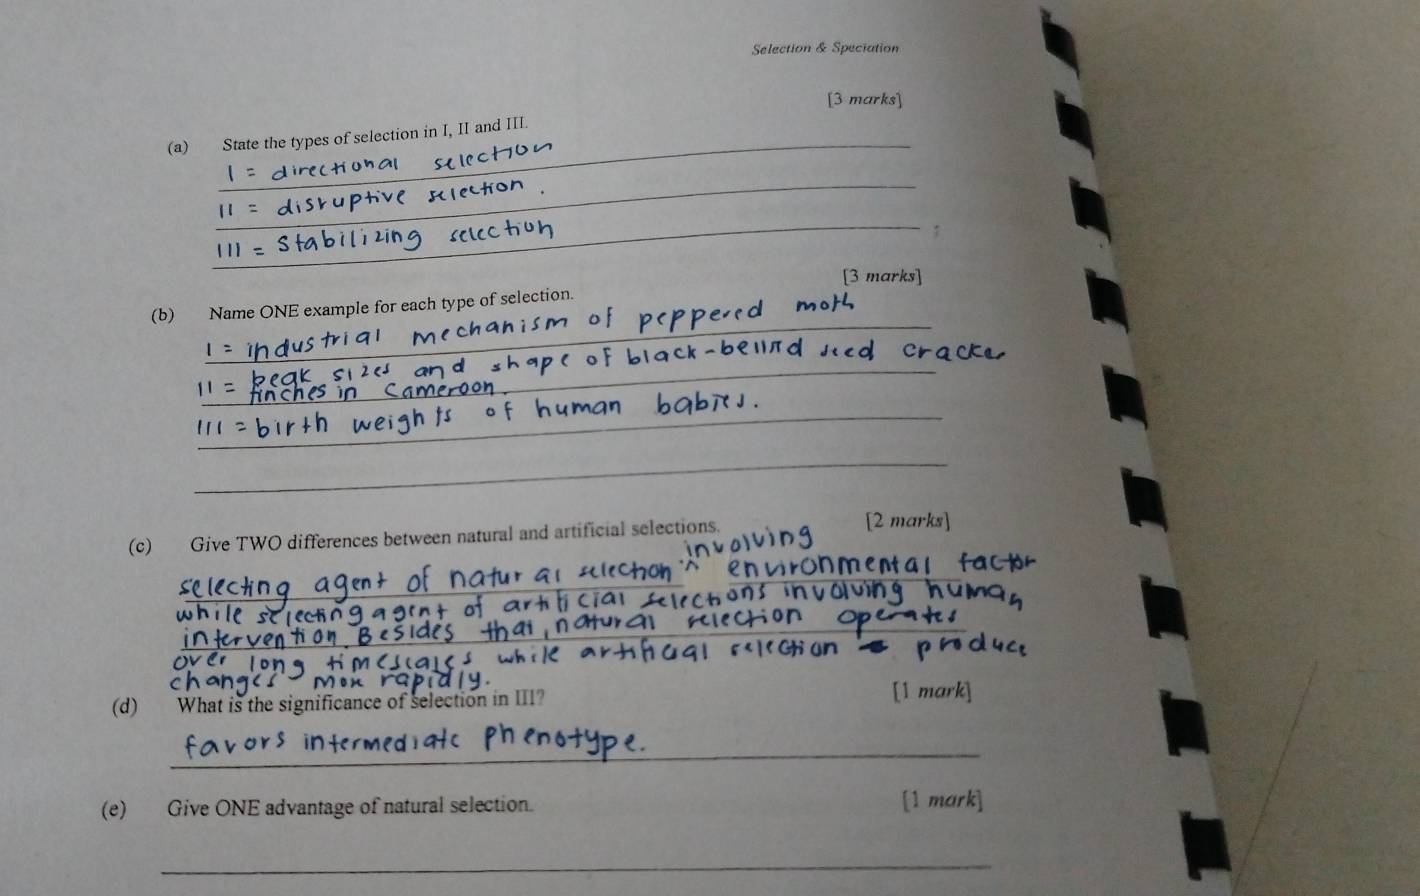 Selection & Speciation
[3 marks]
(a) State the types of selection in I, II and III.
I = directional selection
II = disruptive selection.
III = Stabilizing selection
[3 marks]
(b) Name ONE example for each type of selection.
I = industrial mechanism of peppered moth
II = beak sizes and shape of black-bellied seed cracker
finches in Cameroon.
III = birth weights of human babies.
(c) Give TWO differences between natural and artificial selections. [2 marks]
selecting agent of natural selection involving environmental factor
while selecting agent of artificial selections involving human
intervention. Besides that, natural selection operates
over long timescales while artificial selection produce
changes more rapidly.
(d) What is the significance of selection in III? [1 mark]
favors intermediate phenotype.
(e) Give ONE advantage of natural selection. [1 mark]